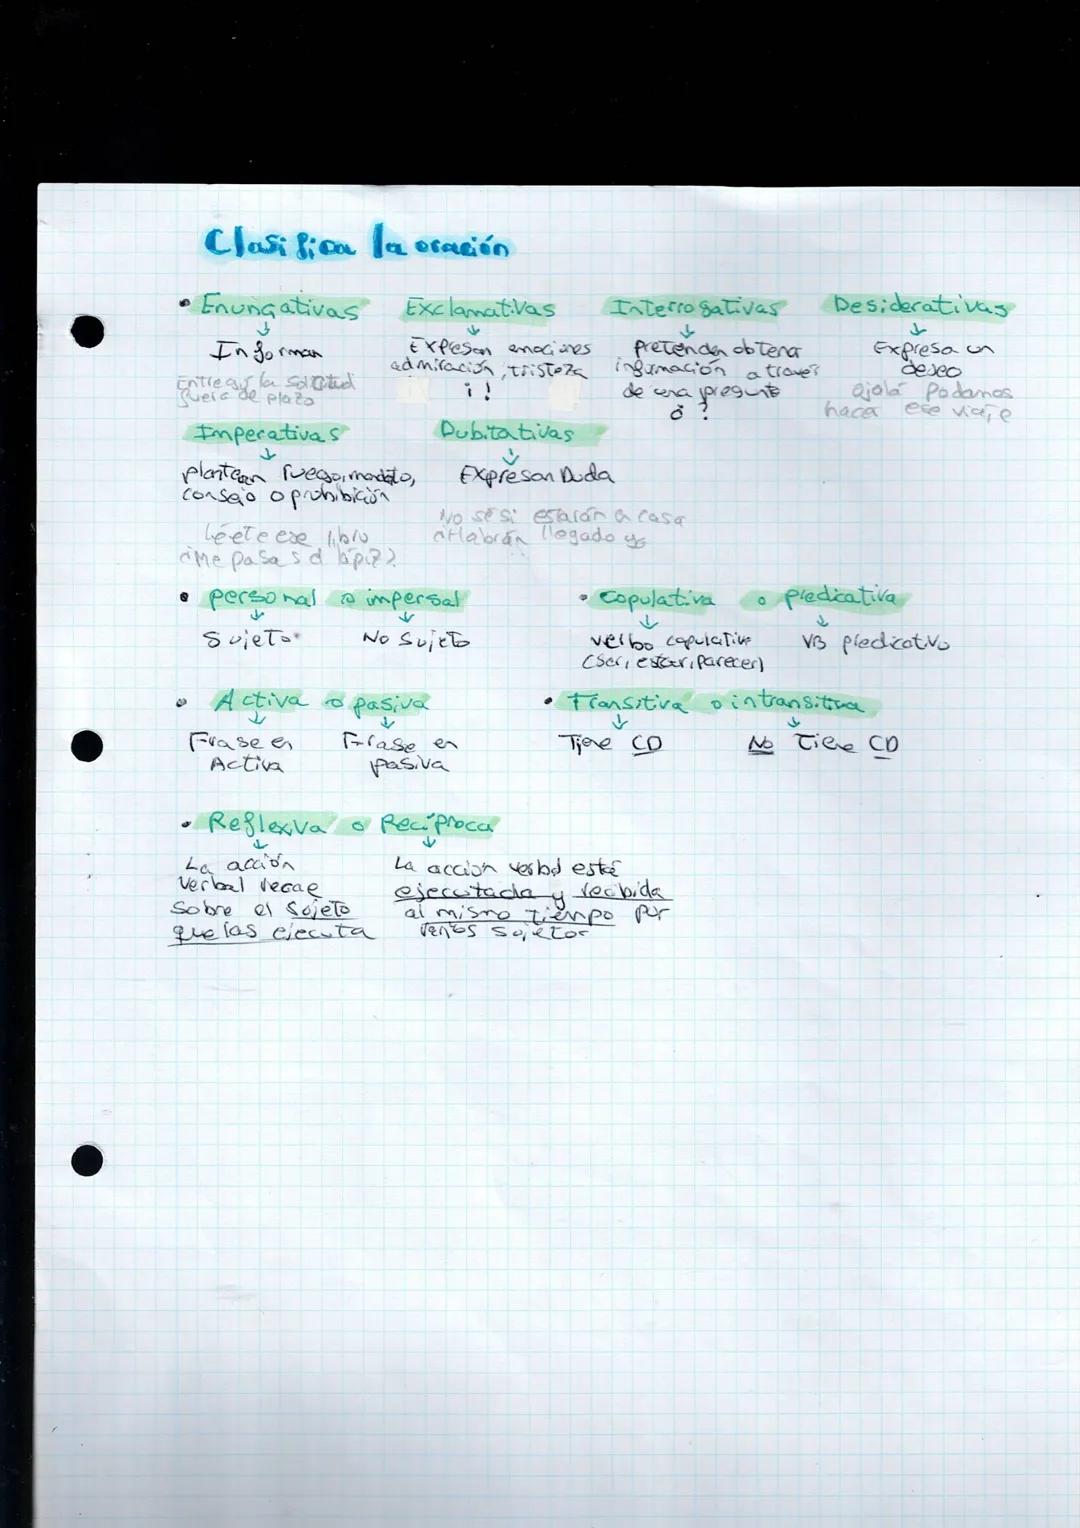 Clasifica la oración
• Enunciativas Exclamativas Interrogativas Desiderativas
Informan
Expresan emociones
admiración, tristeza
¡ !
pretenden obtener
información a traves
de una pregunta
¿ ?
Expresa un
deseo
Entregar la solicitud
fuera de plazo
ojalá podamos
hacer ese viaje
Imperativas Dubitativas
plantean ruego, mandato,
consejo o prohibición
Expresan Duda
Léete ese libro
¿Me pasas el lápiz?
No sé si estarán a casa
Habrán llegado ya
• personal o impersal
Sujeto No Sujeto
• copulativa o predicativa
verbo copulativo
(ser, estar, parecer)
VB predicativo
• Activa o pasiva
Frase en
Activa
Frase en
pasiva
• Transitiva o intransitiva
Tiene CD No Tiene CD
• Reflexiva o Recíproca
La acción
verbal recae
sobre el sujeto
que las ejecuta
La accion verbal está
ejecutada y recibida
al mismo tiempo por
varios sujetos